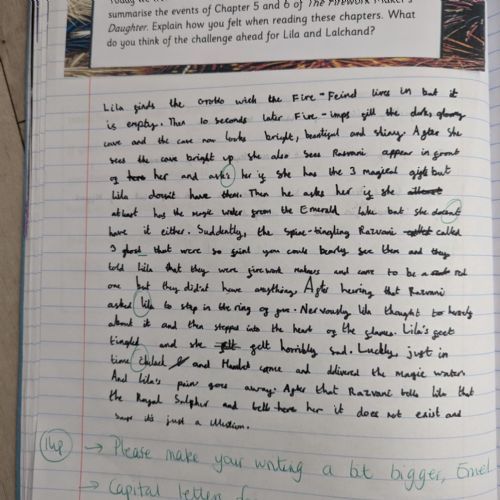 summarise the events of Chapter 5 and 6 of The Firework Maker's
Daughter. Explain how you felt when reading these chapters. What
do you think of the challenge ahead for Lila and Lalchand?
Lila finds the Grotto wich the Fire-Feind lives in but it
is empty. Then 10 seconds later Fire-imps fill the dark, gloomy
cave and the cave now looks bright, beautiful and shiny. After she
sees the cave bright up she also sees Razvani appear in front
of her and asks her if she has the 3 magical gift but
Lila doesn't have them. Then he asks her if she
atleast has the magic water from the Emerald lake but she doesn't
have it either. Suddenly, the spine-tingling Razvani called
3 ghost that were so faint you could bearly see them and they
told Lila that they were firework makers and came to be a
one but they didn't have anything. After hearing that Razvani
asked lila to step in the ring of fire. Nervously lila thought
about it and then stepped into the heart of the flames. Lila's feet
tingled and she felt horribly sad. Luckly, just in
time chulack and Hamlet come and delivered the magic water.
And Lila's pain goes away. After that Razvani tells lila that
the Royal Sulpher and tells her it does not exist and
says it's just a illusion.
→ Please make your writing a bit bigger,
→ Capital letters